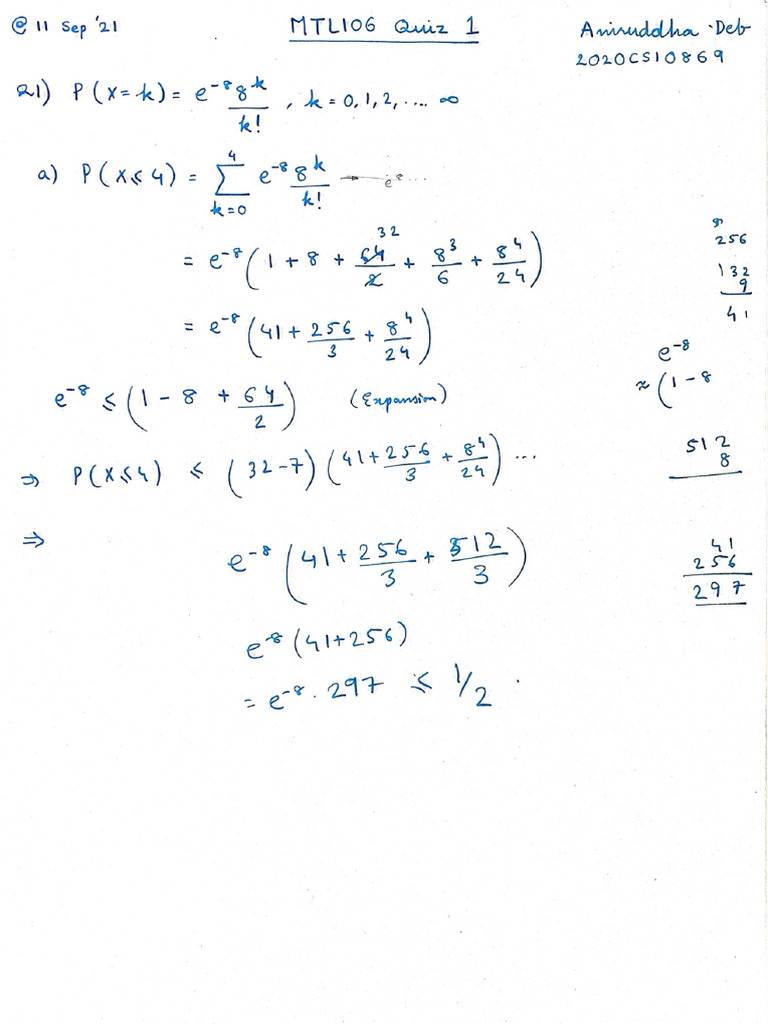 @ 11 Sep '21
MTL106 Quiz 1
Aniruddha Deb
2020CS10869
Q1) P(X=k) = e^-8 8^k / k! , k = 0,1,2, .... ∞
a) P(X≤4) = Σ_{k=0}^{4} e^-8 8^k / k!
= e^-8 (1 + 8 + 64/2 32 + 8^3/6 + 8^4/24)
= e^-8 (41 + 256/3 + 8^4/24)
e^-8 ≤ (1 - 8 + 64/2) (Expansion)
⇒ P(X≤4) ≤ (32-7) (41 + 256/3 + 8^4/24) ...
⇒ e^-8 (41 + 256/3 + 512/3)
e^-8 (41+256)
= e^-8 . 297 ≤ 1/2 .
256
132
9
41
e^-8
≈ (1 - 8
512
8
41
256
297